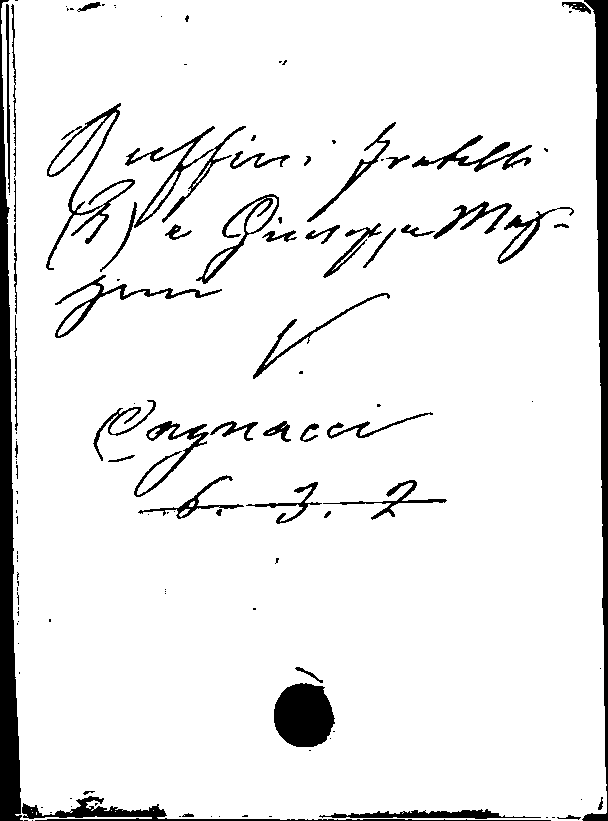 Ruffini fratelli
(I) e Giuseppe Maz-
zini
V.
Cagnacci
6. 3. 2